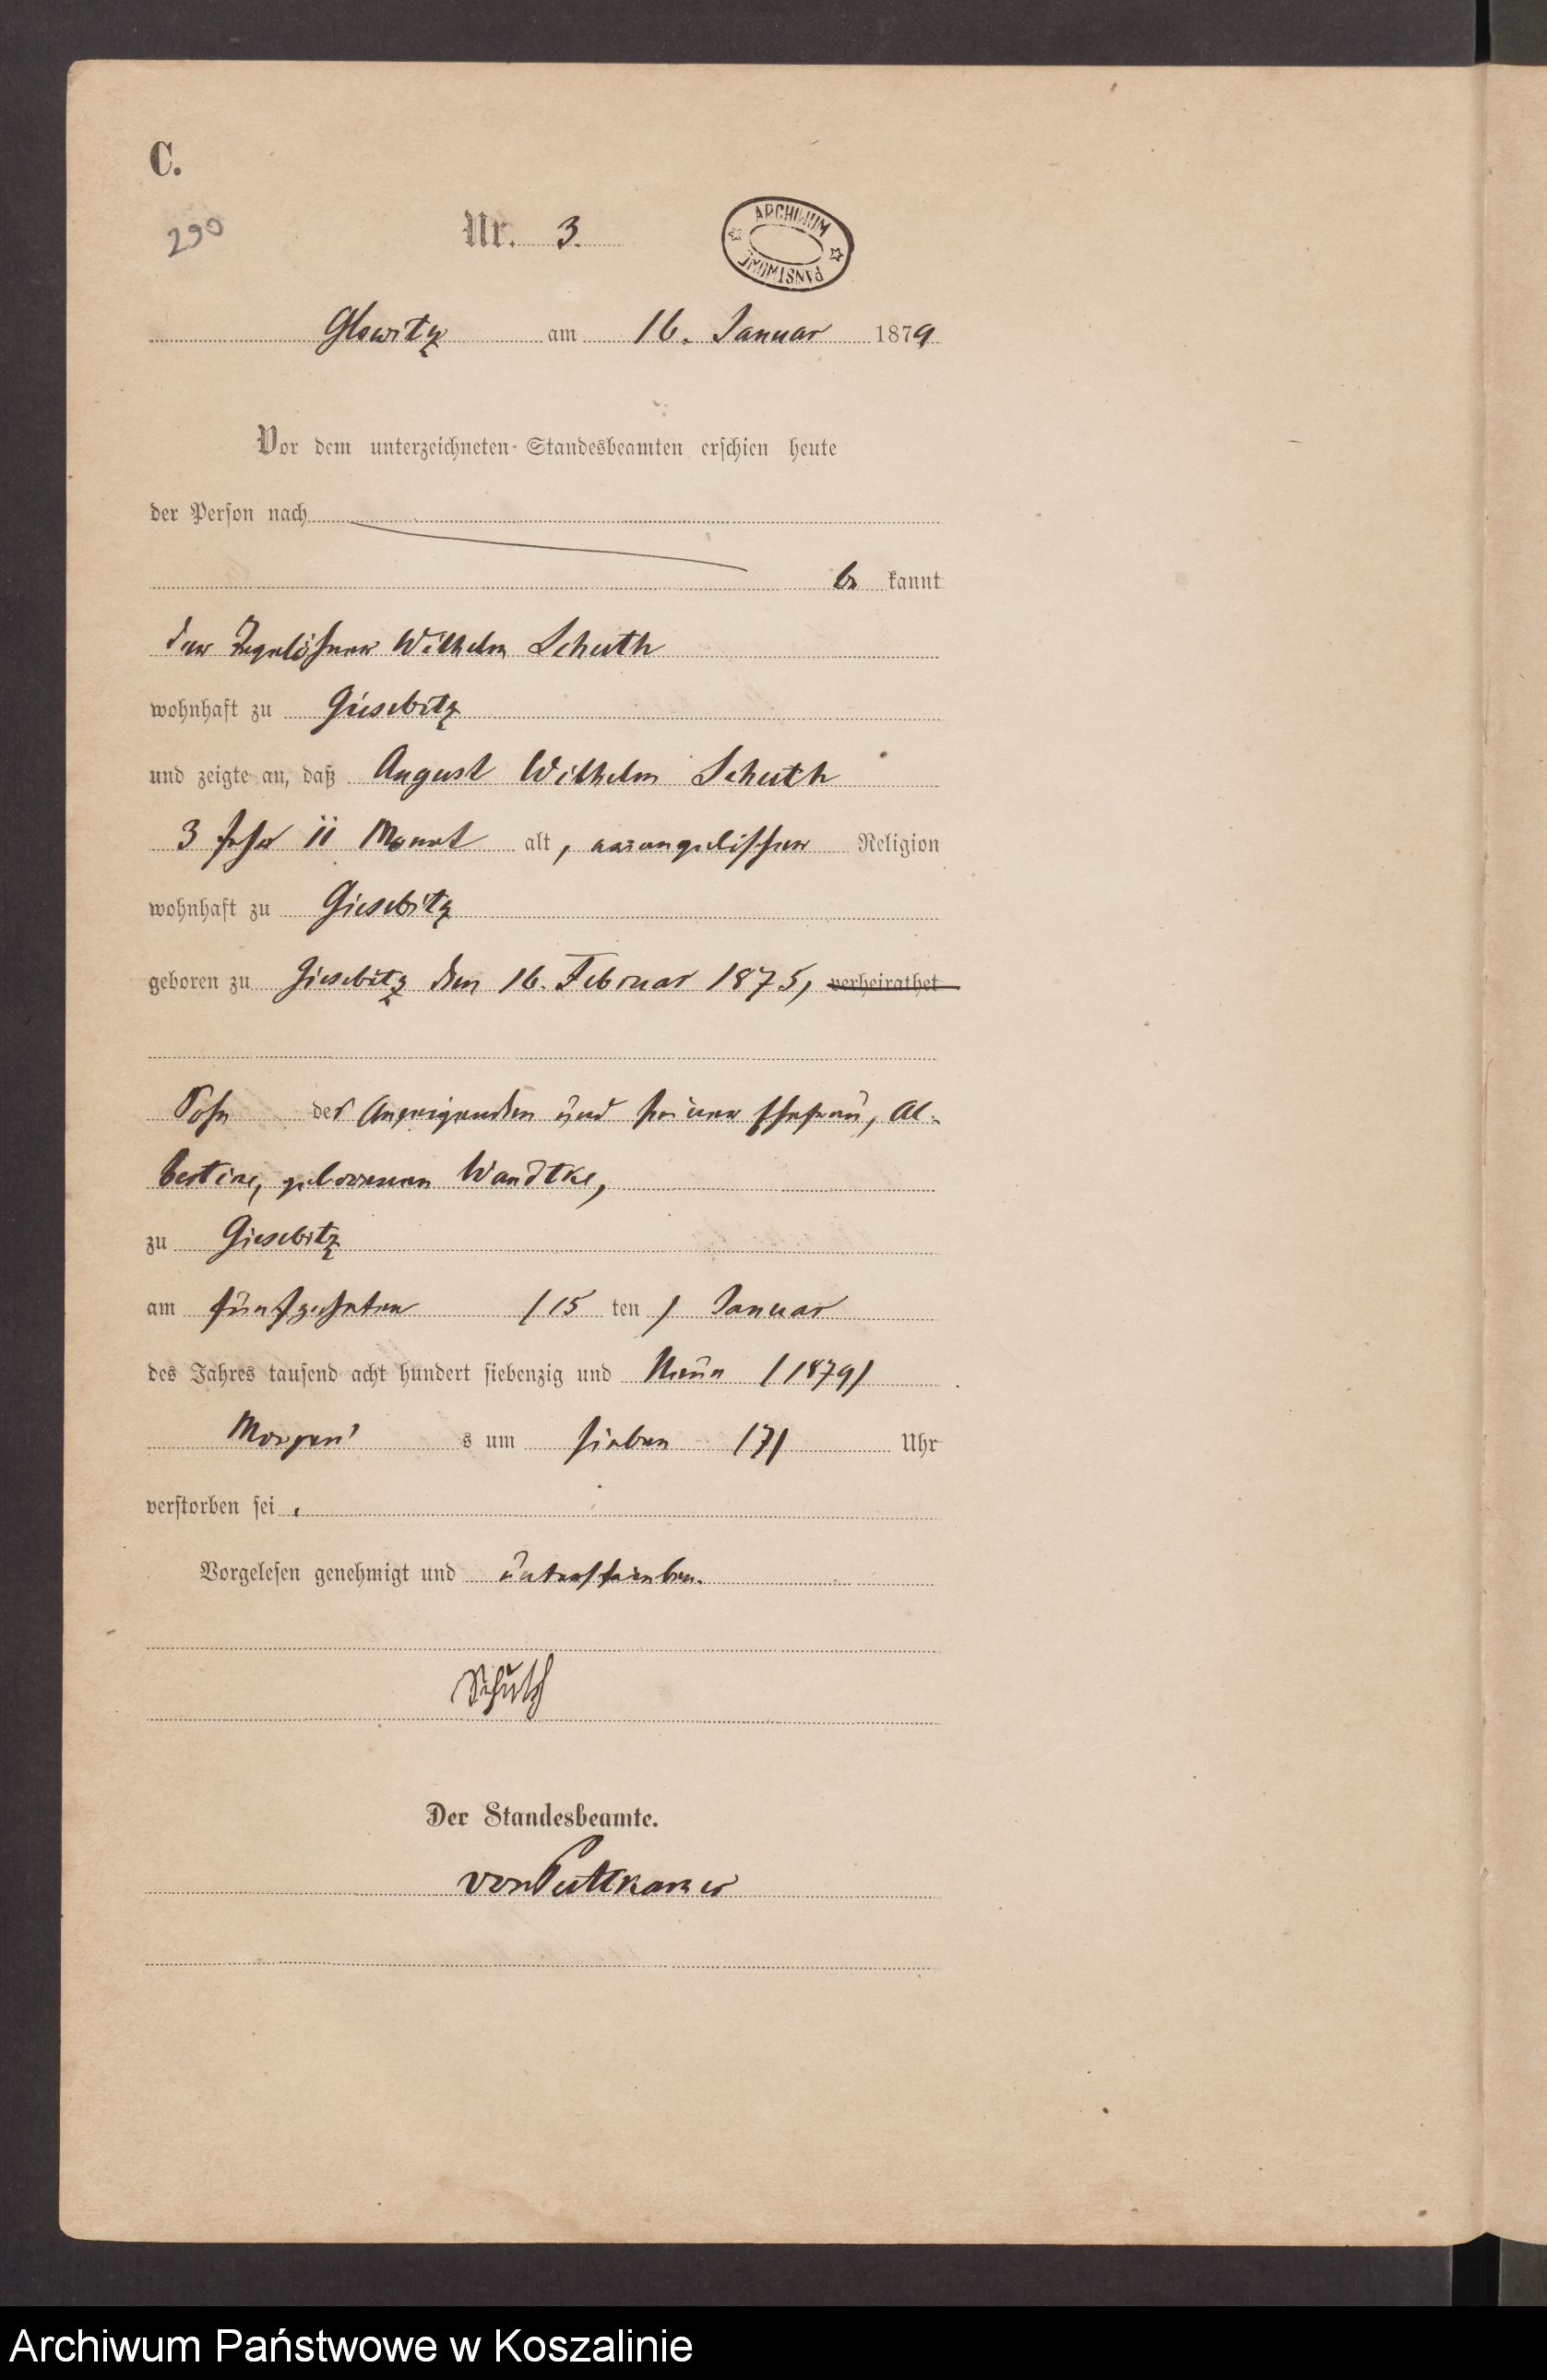 C.
290
Nr. 3.
ARCHIWUM PAŃSTWOWE
Glowitz am 16. Januar 1879
Vor dem unterzeichneten Standesbeamten erschien heute
der Person nach
be kannt
der Tagelöhner Wilhelm Schuth
wohnhaft zu Giesebitz
und zeigte an, daß August Wilhelm Schuth
3 Jahr 11 Monat alt, evangelischer Religion
wohnhaft zu Giesebitz
geboren zu Giesebitz den 16. Februar 1875, verheirathet
Sohn des Anzeigenden und seiner Ehefrau, Al-
bertine, geborenen Wandtke,
zu Giesebitz
am fünfzehnten /15 ten / Januar
des Jahres tausend acht hundert siebenzig und Neun /1879/
Morgen s um sieben /7/ Uhr
verstorben sei.
Vorgelesen genehmigt und unterschrieben.
Schuth
Der Standesbeamte.
von Puttkamer
Archiwum Państwowe w Koszalinie